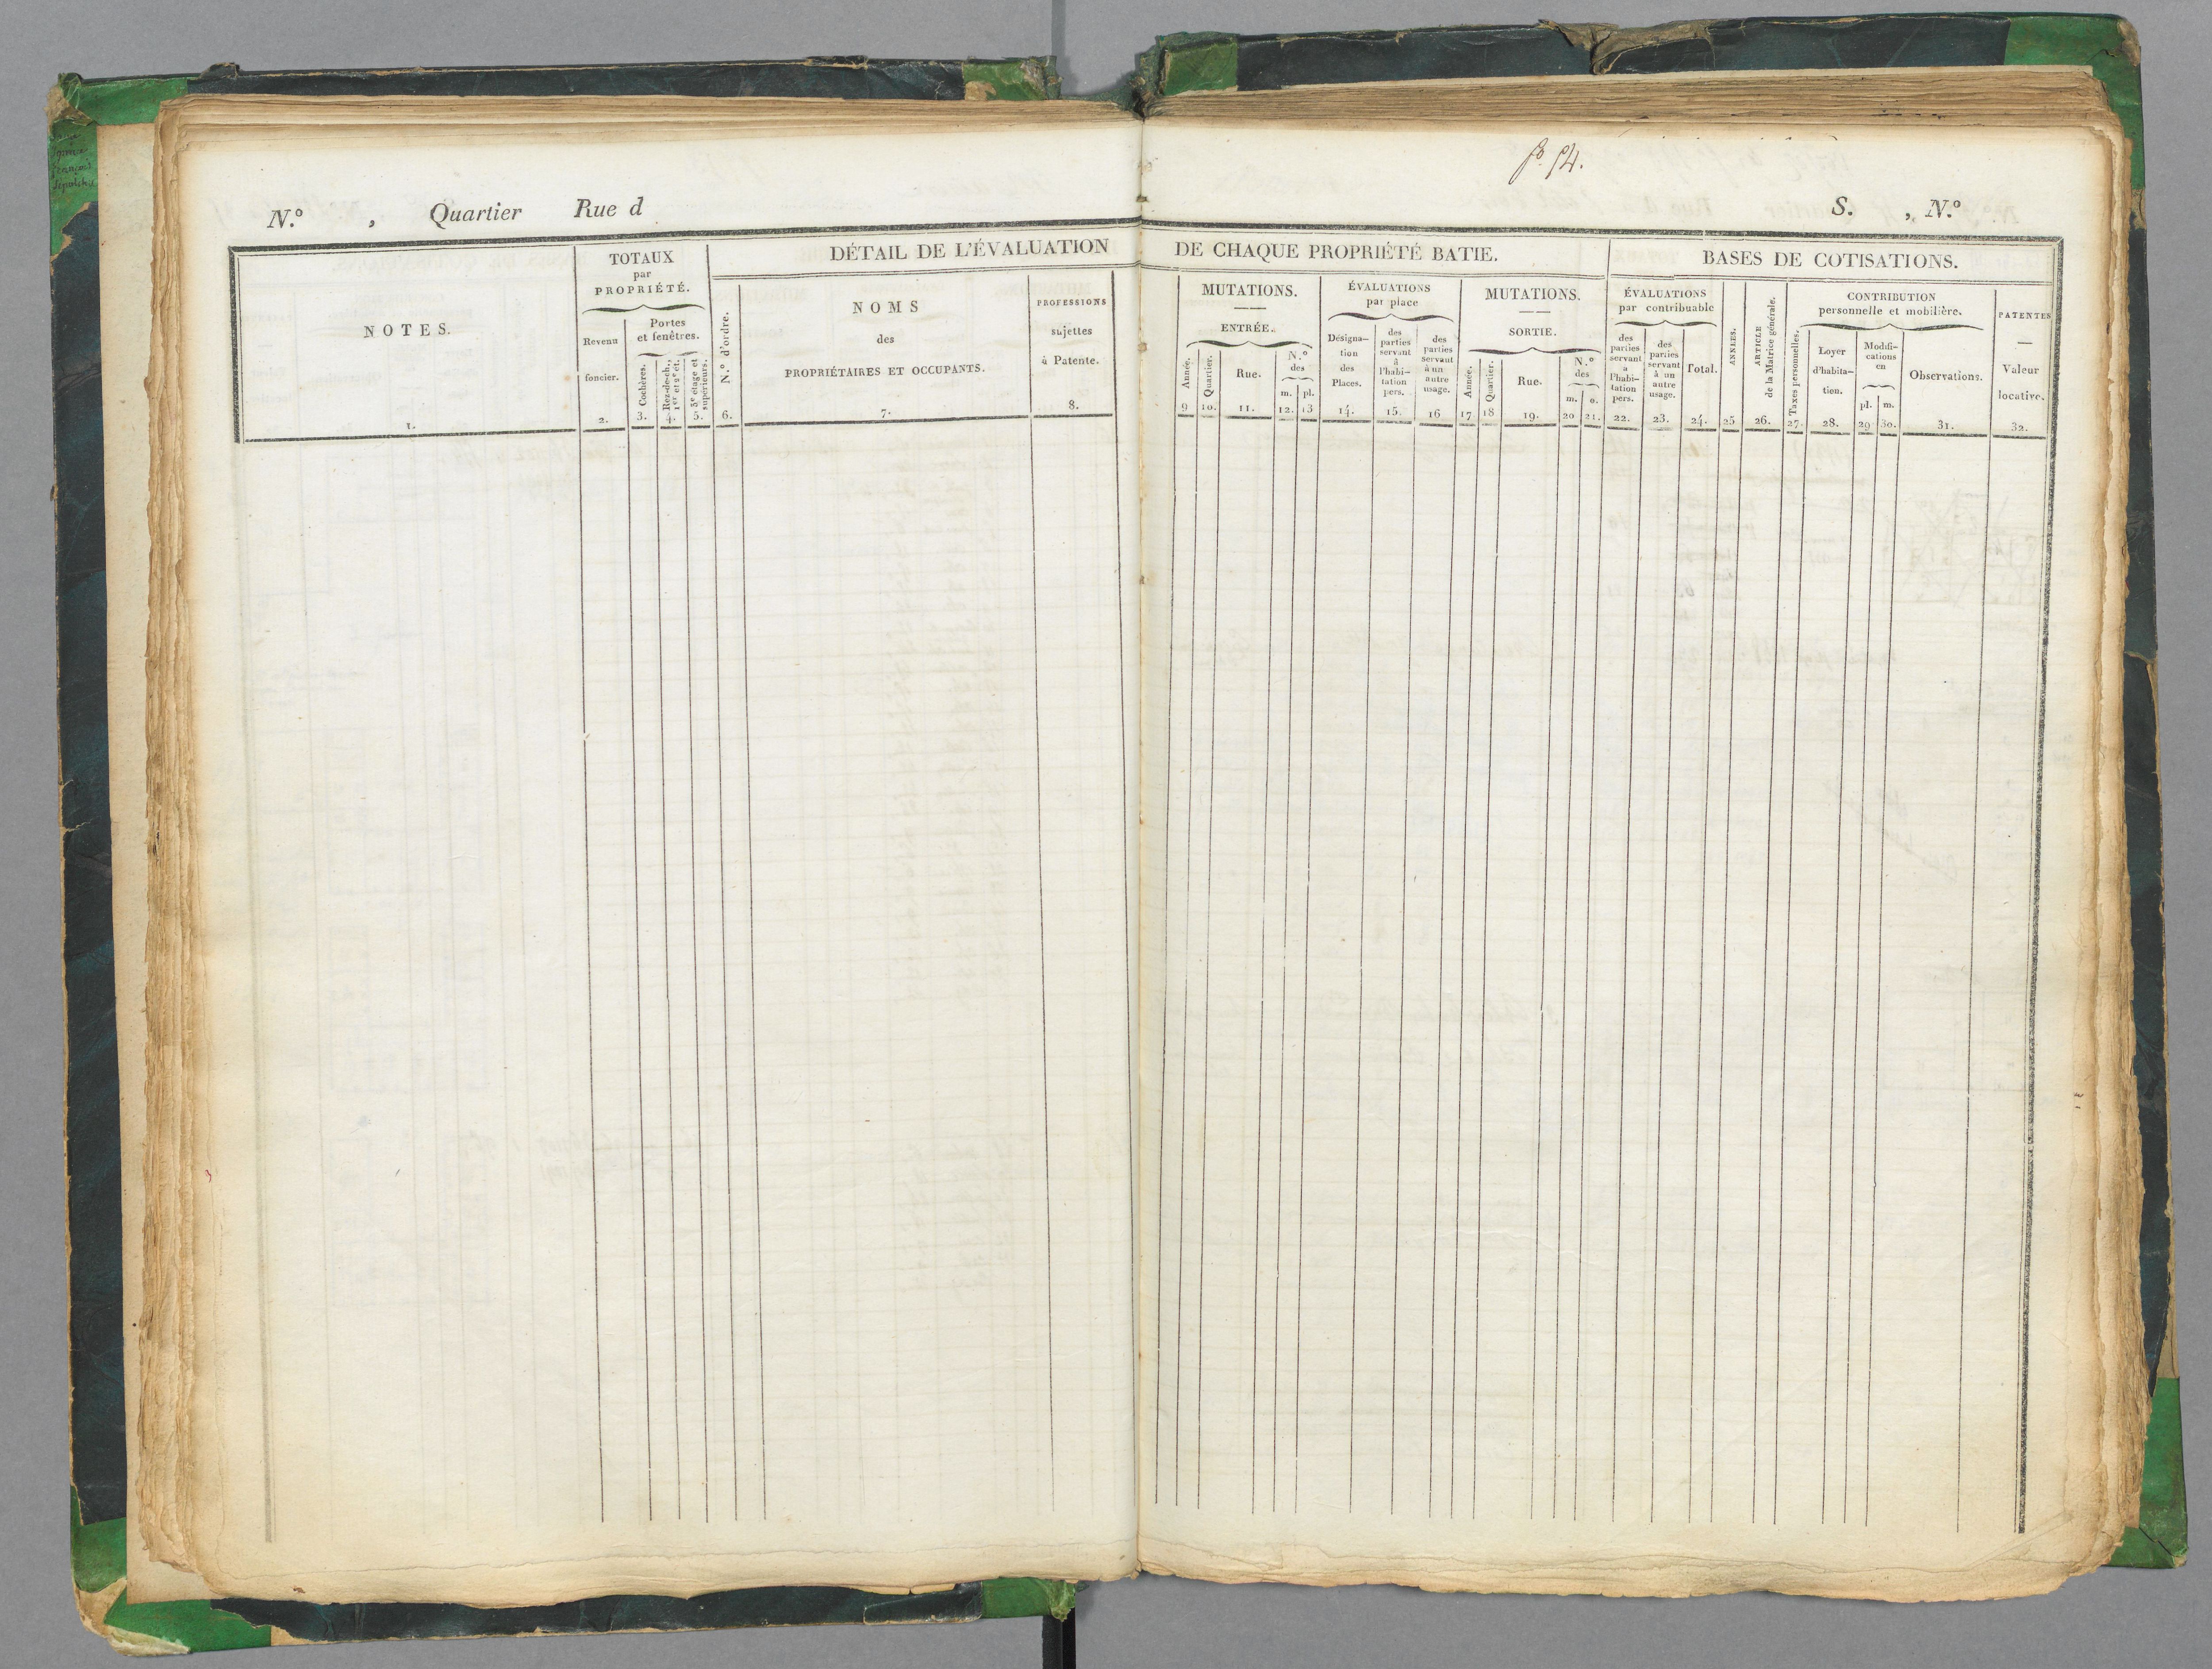 fo. 54.
N.º , Quartier Rue d
S. , N.º
NOTES.
1.
TOTAUX
par
PROPRIÉTÉ.
Revenu
foncier.
2.
Portes
et fenêtres.
Cochères.
3.
Rez-de-ch.,
1er et 2e ét.
4.
3e étage et
supérieurs.
5.
DÉTAIL DE L'ÉVALUATION DE CHAQUE PROPRIÉTÉ BATIE.
N.º d'ordre.
6.
NOMS
des
PROPRIÉTAIRES ET OCCUPANTS.
7.
PROFESSIONS
sujettes
à Patente.
8.
MUTATIONS.
ENTRÉE.
Année.
9
Quartier.
10.
Rue.
11.
N.º
des
m. pl.
12. 13
ÉVALUATIONS
par place
Désigna-
tion
des
Places.
14.
des
parties
servant
à
l'habi-
tation
pers.
15.
des
parties
servant
à un
autre
usage.
16
MUTATIONS.
SORTIE.
Année.
17
Quartier.
18
Rue.
19.
N.º
des
m. o.
20 21.
BASES DE COTISATIONS.
ÉVALUATIONS
par contribuable
des
parties
servant
a
l'habi-
tation
pers.
22.
des
parties
servant
à un
autre
usage.
23.
Total.
24.
ANNÉES.
25
ARTICLE
de la Matrice générale.
26.
CONTRIBUTION
personnelle et mobilière.
Taxes personnelles.
27.
Loyer
d'habita-
tien.
28.
Modifi-
cations
en
pl. m.
29. 30.
Observations.
31.
PATENTES
Valeur
locative.
32.